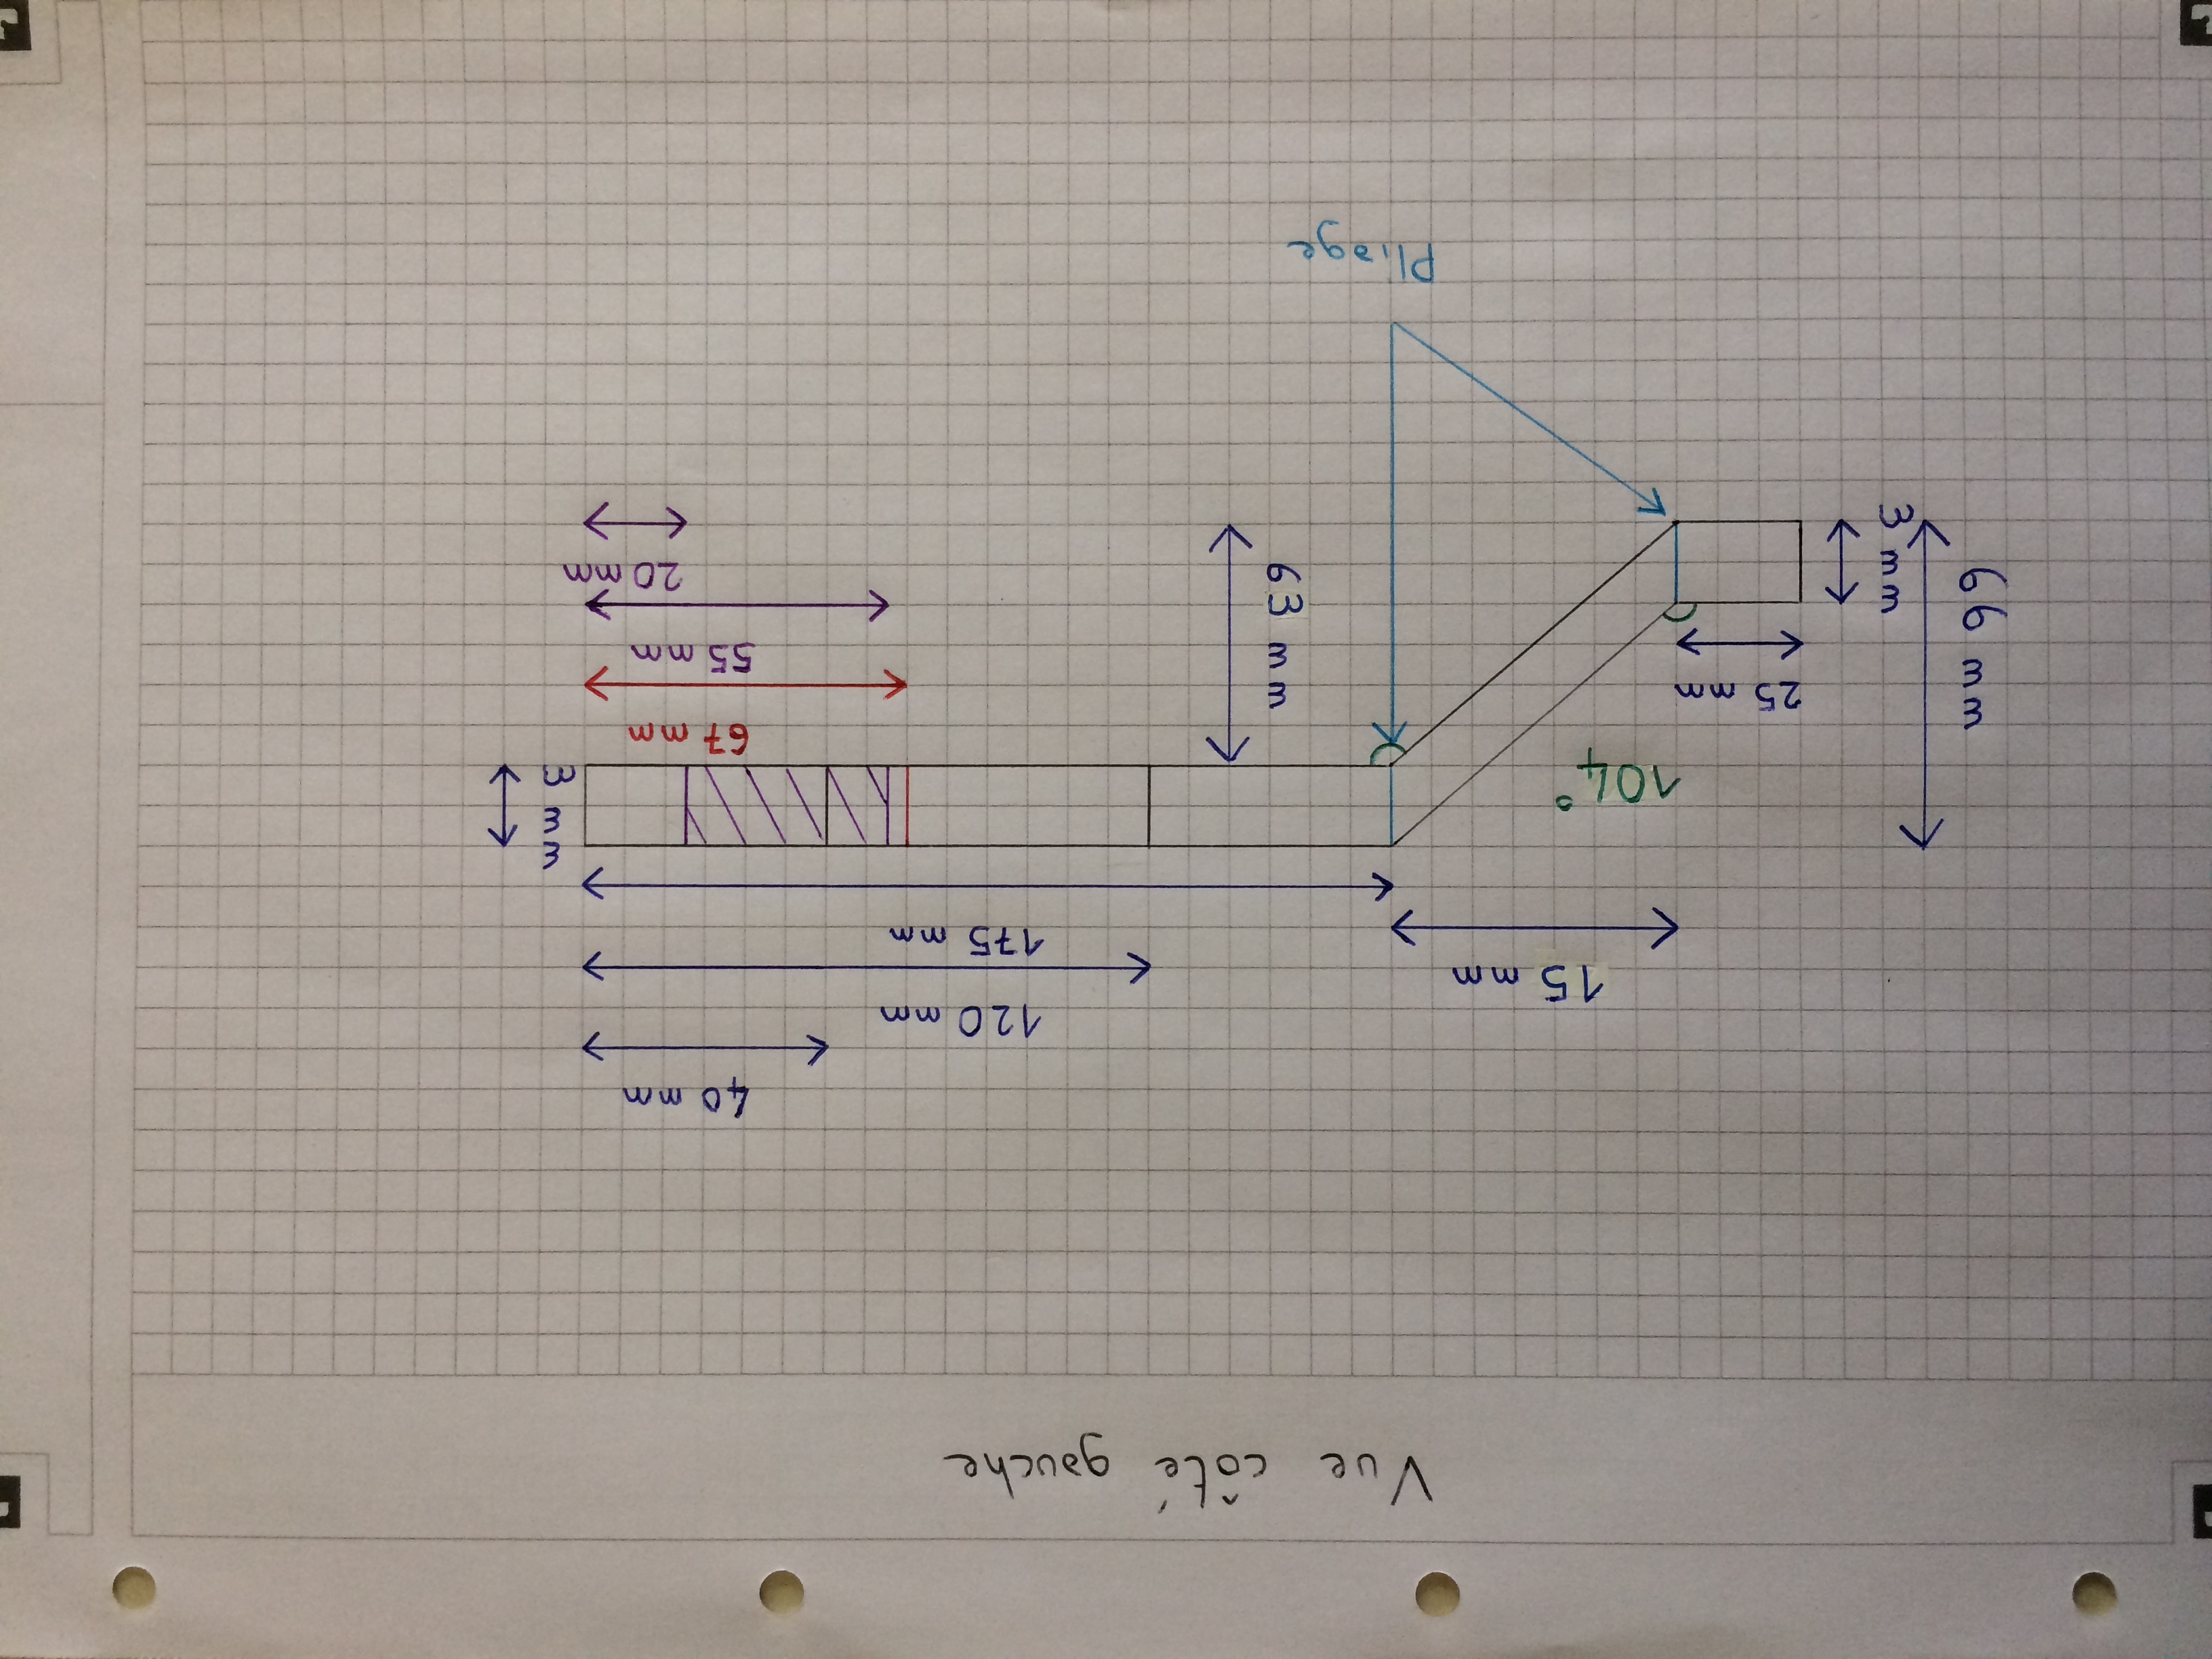 Vue côté gauche
40 mm
120 mm
15 mm
175 mm
3 mm
104°
67 mm
25 mm
55 mm
66 mm
63 mm
20 mm
3 mm
Pliage